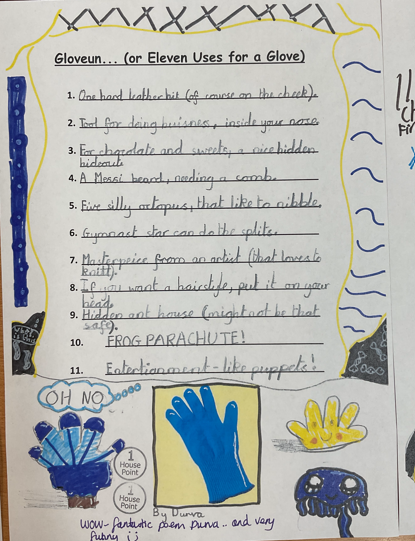 Gloveun... (or Eleven Uses for a Glove)
1. One hard leather hit (of course on the cheek).
2. Tool for doing buisness, inside your nose
3. For chocolate and sweets, a nice hidden
hideout.
4. A Messi beard, needing a comb.
5. Five silly octopus, that like to nibble.
6. Gymnast star can do the splits.
7. Masterpeice from an artist (that loves to
knitt).
8. If you want a hairstyle, put it on your
head.
9. Hidden ant house (might not be that
safe).
10. FROG PARACHUTE!
11. Entertionment - like puppets!
OH NO
1
House
Point
1
House
Point
By Durva
WOW- fantastic poem Durva .. and very
funny